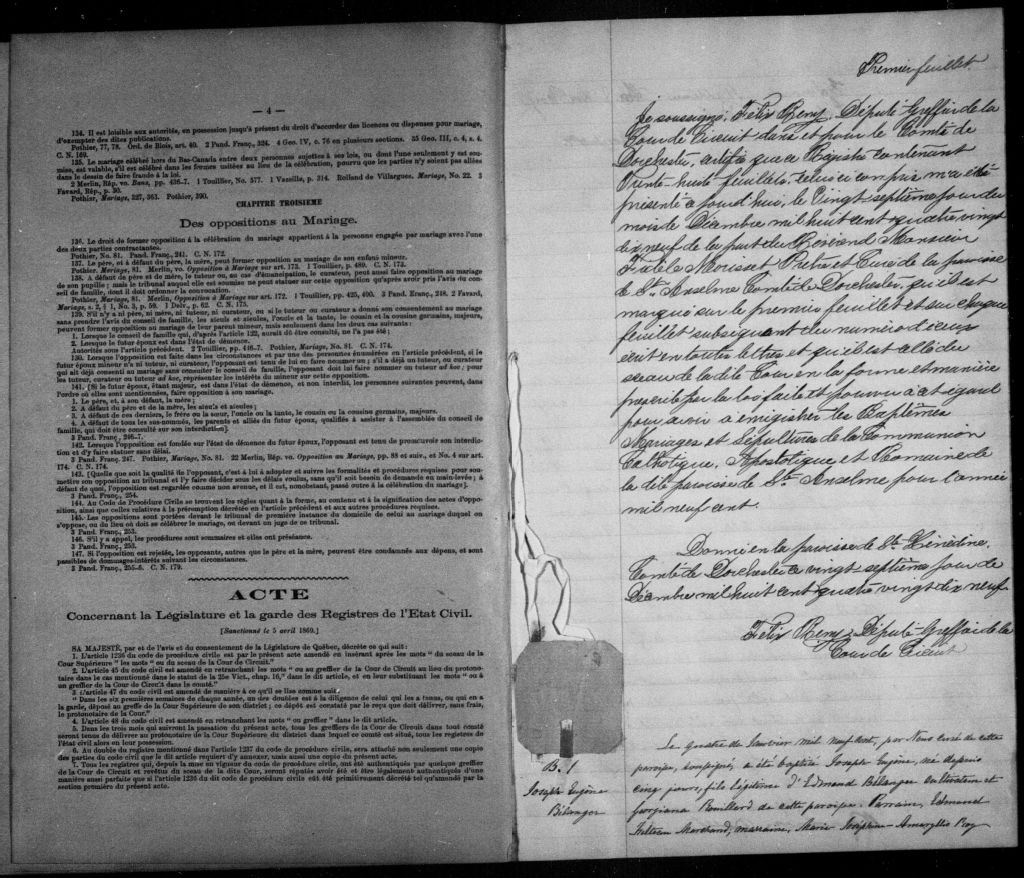 — 4 —
134. Il est loisible aux autorités, en possession jusqu'à présent du droit d'accorder des licences ou dispenses pour mariage,
d'exempter des dites publications.
Pothier, 77, 78. Ord. de Blois, art. 40. 2 Pand. Franç., 324. 4 Geo. IV, c. 76 en plusieurs sections. 35 Geo. III, c. 4, s. 4.
C. N. 169.
135. Le mariage célébré hors du Bas-Canada entre deux personnes sujettes à ses lois, ou dont l'une seulement y est sou-
mise, est valable, s'il est célébré dans les formes usitées au lieu de la célébration, pourvu que les parties n'y soient pas allées
dans le dessin de faire fraude à la loi.
2 Merlin, Rép. vo. Bans, pp. 436-7. 1 Touillier, No. 577. 1 Vazeille, p. 314. Rolland de Villargues. Mariage, No. 22. 3
Favard, Rép., p. 30.
Pothier, Mariage, 327, 363. Pothier, 390.
CHAPITRE TROISIEME
Des oppositions au Mariage.
136. Le droit de former opposition à la célébration du mariage appartient à la personne engagée par mariage avec l'une
des deux parties contractantes.
Pothier, No. 81. Pand. Franç., 241. C. N. 172.
137. Le père, et à défaut du père, la mère, peut former opposition au mariage de son enfant mineur.
Pothier. Mariage, 81. Merlin, vo. Opposition à Mariage sur art. 173. 1 Touillier, p. 489. C. N. 173.
138. A défaut de père et de mère, le tuteur ou, au cas d'émancipation, le curateur, peut aussi faire opposition au mariage
de son pupille; mais le tribunal auquel elle est soumise ne peut statuer sur cette opposition qu'après avoir pris l'avis du con-
seil de famille, dont il doit ordonner la convocation.
Pothier, Mariage, 81. Merlin, Opposition à Mariage sur art. 172. 1 Touillier, pp. 425, 490. 3 Pand. Franç., 248. 2 Favard,
Mariage, s. 2, § 1, No. 3, p. 59. 1 Delv., p. 62. C. N. 175.
139. S'il n'y a ni père, ni mère, ni tuteur, ni curateur, ou si le tuteur ou curateur a donné son consentement au mariage
sans prendre l'avis du conseil de famille, les aïeuls et aïeules, l'oncle et la tante, le cousin et la cousine germains, majeurs,
peuvent former opposition au mariage de leur parent mineur, mais seulement dans les deux cas suivants:
1. Lorsque le conseil de famille qui, d'après l'article 122, aurait dû être consulté, ne l'a pas été;
2. Lorsque le futur époux est dans l'état de démence.
Autorités sous l'article précédent. 2 Touillier, pp. 416-7. Pothier, Mariage, No. 81. C. N. 174.
130. Lorsque l'opposition est faite dans les circonstances et par une des personnes énumérées en l'article précédent, si le
futur époux mineur n'a ni tuteur, ni curateur, l'opposant est tenu de lui en faire nommer un; s'il a déjà un tuteur, ou curateur
qui ait déjà consenti au mariage sans consulter le conseil de famille, l'opposant doit lui faire nommer un tuteur ad hoc; pour
les tuteur, curateur ou tuteur ad hoc, représenter les intérêts du mineur sur cette opposition.
141. [Si le futur époux, étant majeur, est dans l'état de démence, et non interdit, les personnes suivantes peuvent, dans
l'ordre où elles sont mentionnées, faire opposition à son mariage.
1. Le père, et, à son défaut, la mère;
2. A défaut du père et de la mère, les aïeuls et aïeules;
3. A défaut de ces derniers, le frère ou la sœur, l'oncle ou la tante, le cousin ou la cousine germains, majeurs.
4. A défaut de tous les sus-nommés, les parents et alliés du futur époux, qualifiés à assister à l'assemblée du conseil de
famille, qui doit être consulté sur son interdiction].
3 Pand. Franç., 246-7.
142. Lorsque l'opposition est fondée sur l'état de démence du futur époux, l'opposant est tenu de promouvoir son interdic-
tion et d'y faire statuer sans délai.
3 Pand. Franç. 247. Pothier, Mariage, No. 81. 22 Merlin, Rép. vo. Opposition au Mariage, pp. 88 et suiv., et No. 4 sur art.
174. C. N. 174.
143. [Quelle que soit la qualité de l'opposant, c'est à lui à adopter et suivre les formalités et procédures requises pour sou-
mettre son opposition au tribunal et l'y faire décider sous les délais voulus, sans qu'il soit besoin de demande en main-levée; à
défaut de quoi, l'opposition est regardée comme non avenue, et il est, nonobstant, passé outre à la célébration du mariage].
3 Pand. Franç., 254.
144. Au Code de Procédure Civile se trouvent les règles quant à la forme, au contenu et à la signification des actes d'oppo-
sition, ainsi que celles relatives à la péremption décrétée en l'article précédent et aux autres procédures requises.
145. Les oppositions sont portées devant le tribunal de première instance du domicile de celui au mariage duquel on
s'oppose, ou du lieu où doit se célébrer le mariage, ou devant un juge de ce tribunal.
3 Pand. Franç., 253.
146. S'il y a appel, les procédures sont sommaires et elles ont préséance.
3 Pand. Franç., 253.
147. Si l'opposition est rejetée, les opposants, autres que le père et la mère, peuvent être condamnés aux dépens, et sont
passibles de dommages-intérêts suivant les circonstances.
3 Pand. Franç., 255-6. C. N. 179.
ACTE
Concernant la Législature et la garde des Registres de l'Etat Civil.
[Sanctionné le 5 avril 1869.]
SA MAJESTÉ, par et de l'avis et du consentement de la Législature de Québec, décrète ce qui suit:
1. L'article 1236 du code de procédure civile est par le présent acte amendé en insérant après les mots " du sceau de la
Cour Supérieure " les mots " ou du sceau de la Cour de Circuit."
2. L'article 45 du code civil est amendé en retranchant les mots " ou au greffier de la Cour de Circuit au lieu du protono-
taire dans le cas mentionné dans le statut de la 25e Vict., chap. 16," dans le dit article, et en leur substituant les mots " ou à
un greffier de la Cour de Circuit dans le comté."
3. L'article 47 du code civil est amendé de manière à ce qu'il se lise comme suit.
" Dans les six premières semaines de chaque année, un des doubles est à la diligence de celui qui les a tenus, ou qui en a
la garde, déposé au greffe de la Cour Supérieure de son district; ce dépôt est constaté par le reçu que doit délivrer, sans frais,
le protonotaire de la Cour."
4. L'article 48 du code civil est amendé en retranchant les mots " ou greffier " dans le dit article.
5. Dans les trois mois qui suivront la passation du présent acte, tous les greffiers de la Cour de Circuit dans tout comté
seront tenus de délivrer au protonotaire de la Cour Supérieure du district dans lequel ce comté est situé, tous les registres de
l'état civil alors en leur possession.
6. Au double du registre mentionné dans l'article 1237 du code de procédure civile, sera attaché non seulement une copie
des parties du code civil que le dit article requiert d'y annexer, mais aussi une copie du présent acte.
7. Tous les registres qui, depuis la mise en vigueur du code de procédure civile, ont été authentiqués par quelque greffier
de la Cour de Circuit et revêtu du sceau de la dite Cour, seront réputés avoir été et être légalement authentiqués d'une
manière aussi parfaite que si l'article 1236 du dit code de procédure civile eût été primitivement décrété tel qu'amendé par la
section première du présent acte.
Premier feuillet
Je soussigné, Félix Remy, Député Greffier de la
Cour de Circuit dans et pour le Comté de
Dorchester, certifie que ce Régistre contenant
Trente-huit feuillets, celui ci compris m'a été
présenté aujourd'hui, le Vingt septième jour du
mois de Décembre mil huit cent quatre vingt
dix neuf de la part du Révérend Monsieur
Fidèle Morisset Prêtre et Curé de la paroisse
de St. Anselme Comté de Dorchester, qu'il est
marqué sur le premier feuillet et sur chaque
feuillet subséquent du numéro d'iceux
écrit en toutes lettres et qu'il est scellé du
sceau de la dite Cour en la forme et manière
prescrite par la loi faite et pourvu à cet égard
pour avoir à enrégistrer les Baptêmes
Mariages et Sépultures de la Communion
Catholique, Apostolique et Romaine de
la dite paroisse de St. Anselme pour l'année
mil neuf cent.
Donné en la paroisse de Ste. Hénédine,
Comté de Dorchester ce vingt septième jour de
Décembre mil huit cent quatre vingt dix neuf
Félix Remy, Député Greffier de la
Cour de Circuit
B. 1
Joseph Eugène
Bélanger
Le quatre de Janvier mil neuf cent, par Nous curé de cette
paroisse, soussigné, a été baptisé Joseph Eugène, né depuis
cinq jours, fils légitime d'Edmond Bélanger cultivateur et
Georgiana Rouillard de cette paroisse. Parrain, Edmond
Marchand; marraine, Marie Joséphine-Amaryllis Roy